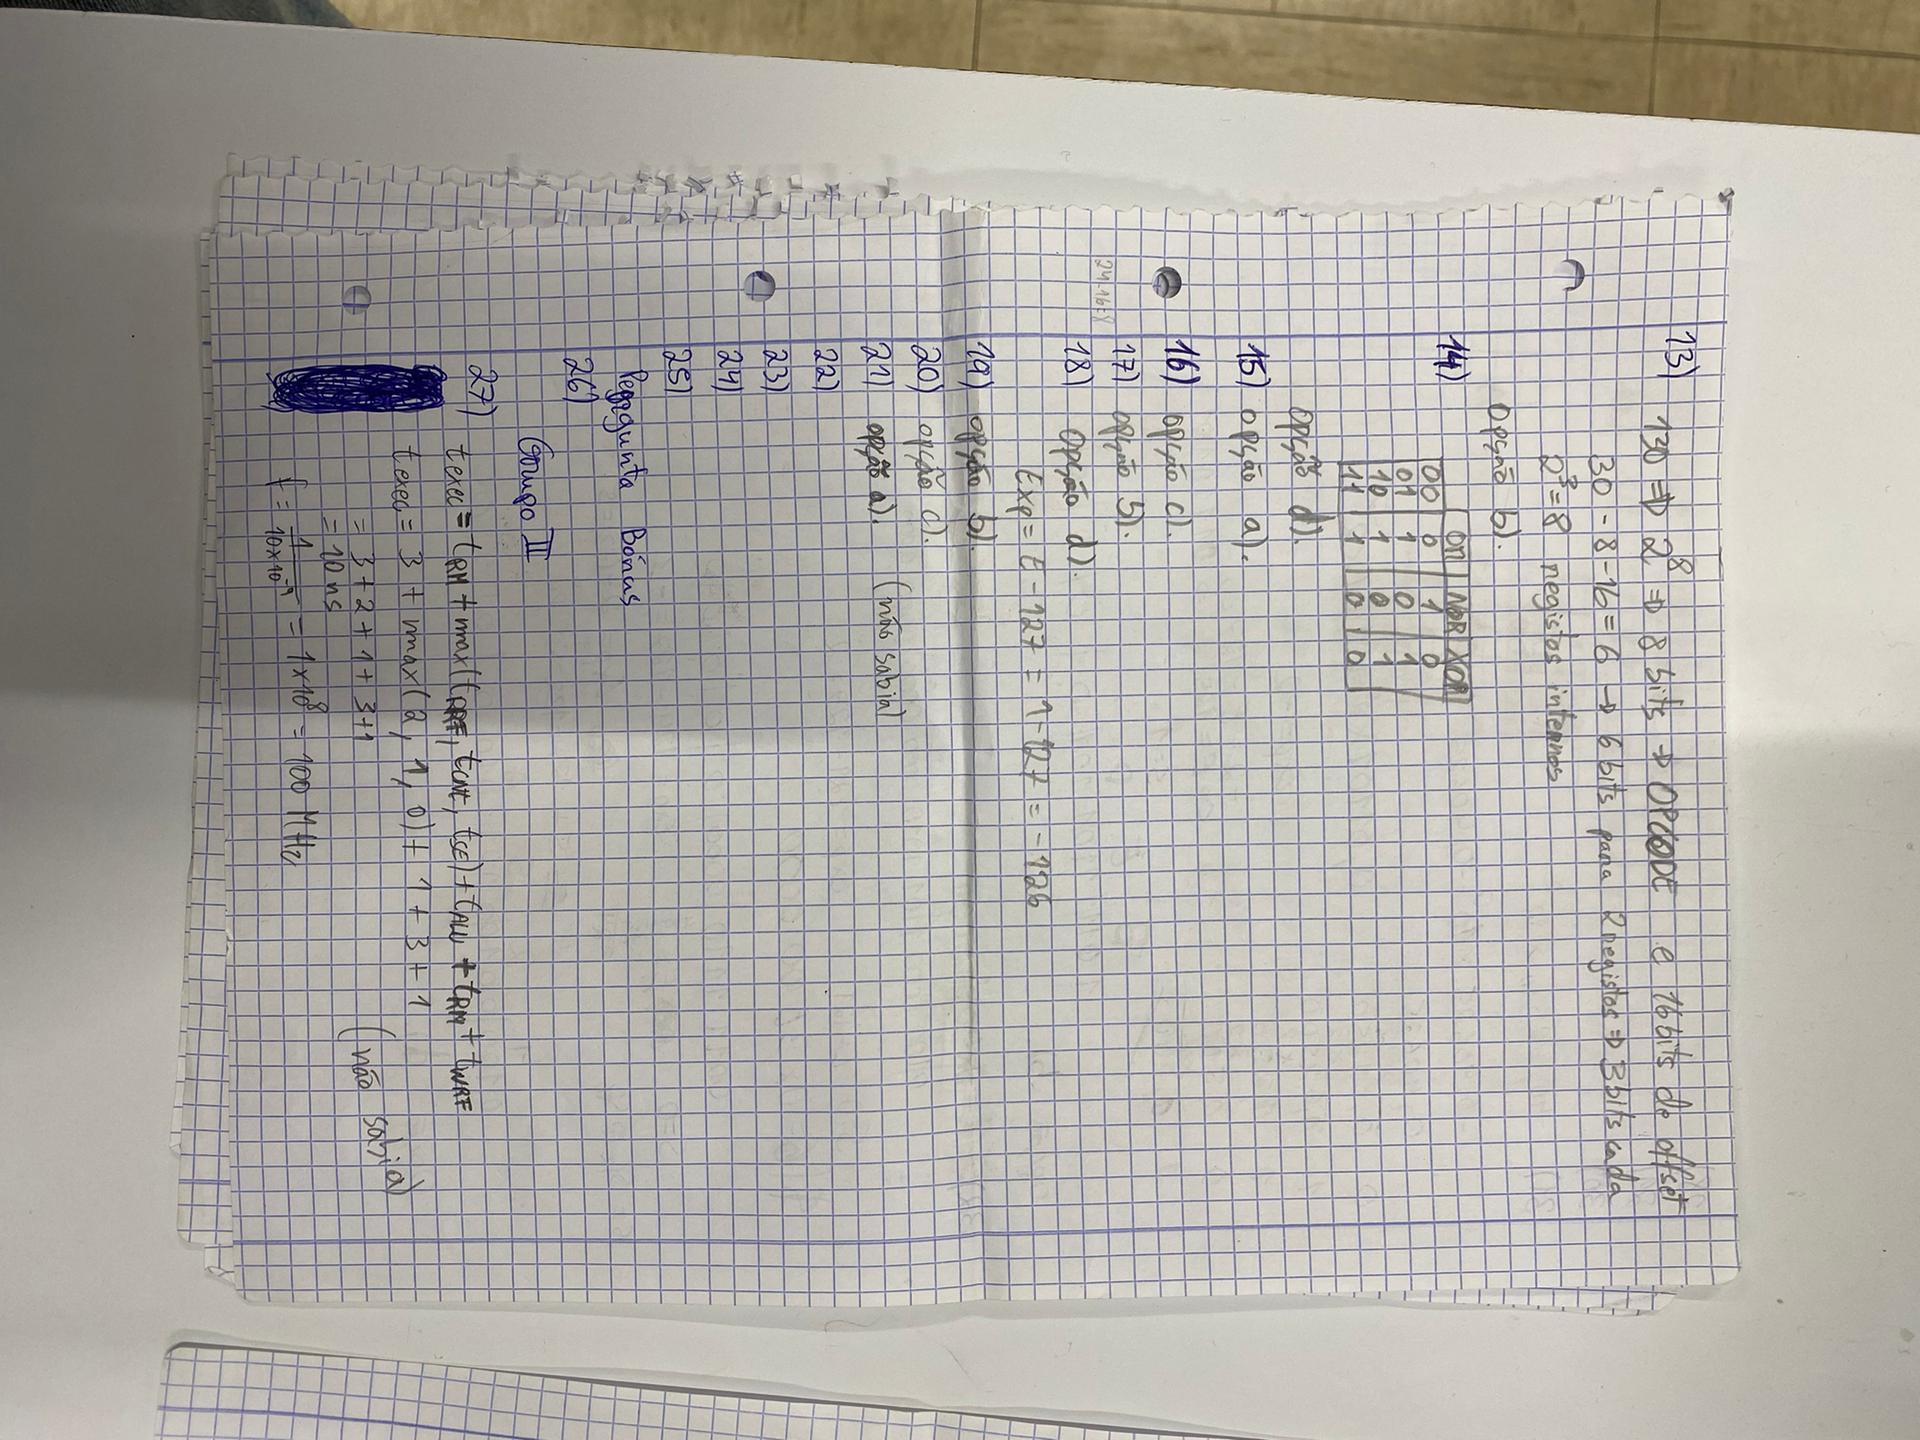 13) 130 ⇒ 2^8 ⇒ 8 bits → OPCODE e 16 bits de offset
30 - 8 - 16 = 6 → 6 bits para 2 registos ⇒ 3 bits cada
2^3 = 8 registos internos
Opção b).
14) OR NOR XOR
00 0 1 0
01 1 0 1
10 1 0 1
11 1 0 0
Opção d).
15) opção a).
16) opção c).
17) opção b).
24-16=8
18) Opção d).
Exp = E - 127 = 1 - 127 = -126
19) opção b).
20) opção c).
21) opção a). (não sabia)
22)
23)
24)
25)
Pergunta Bónus
26)
Grupo II
27) texec = tRM + max(tRRF, tCNT, tSE) + tALU + tRM + tWRF
texec = 3 + max(2, 1, 0) + 1 + 3 + 1
= 3 + 2 + 1 + 3 + 1 (não sabia)
= 10 ns
f = 1/(10×10^-9) = 1×10^8 = 100 MHz